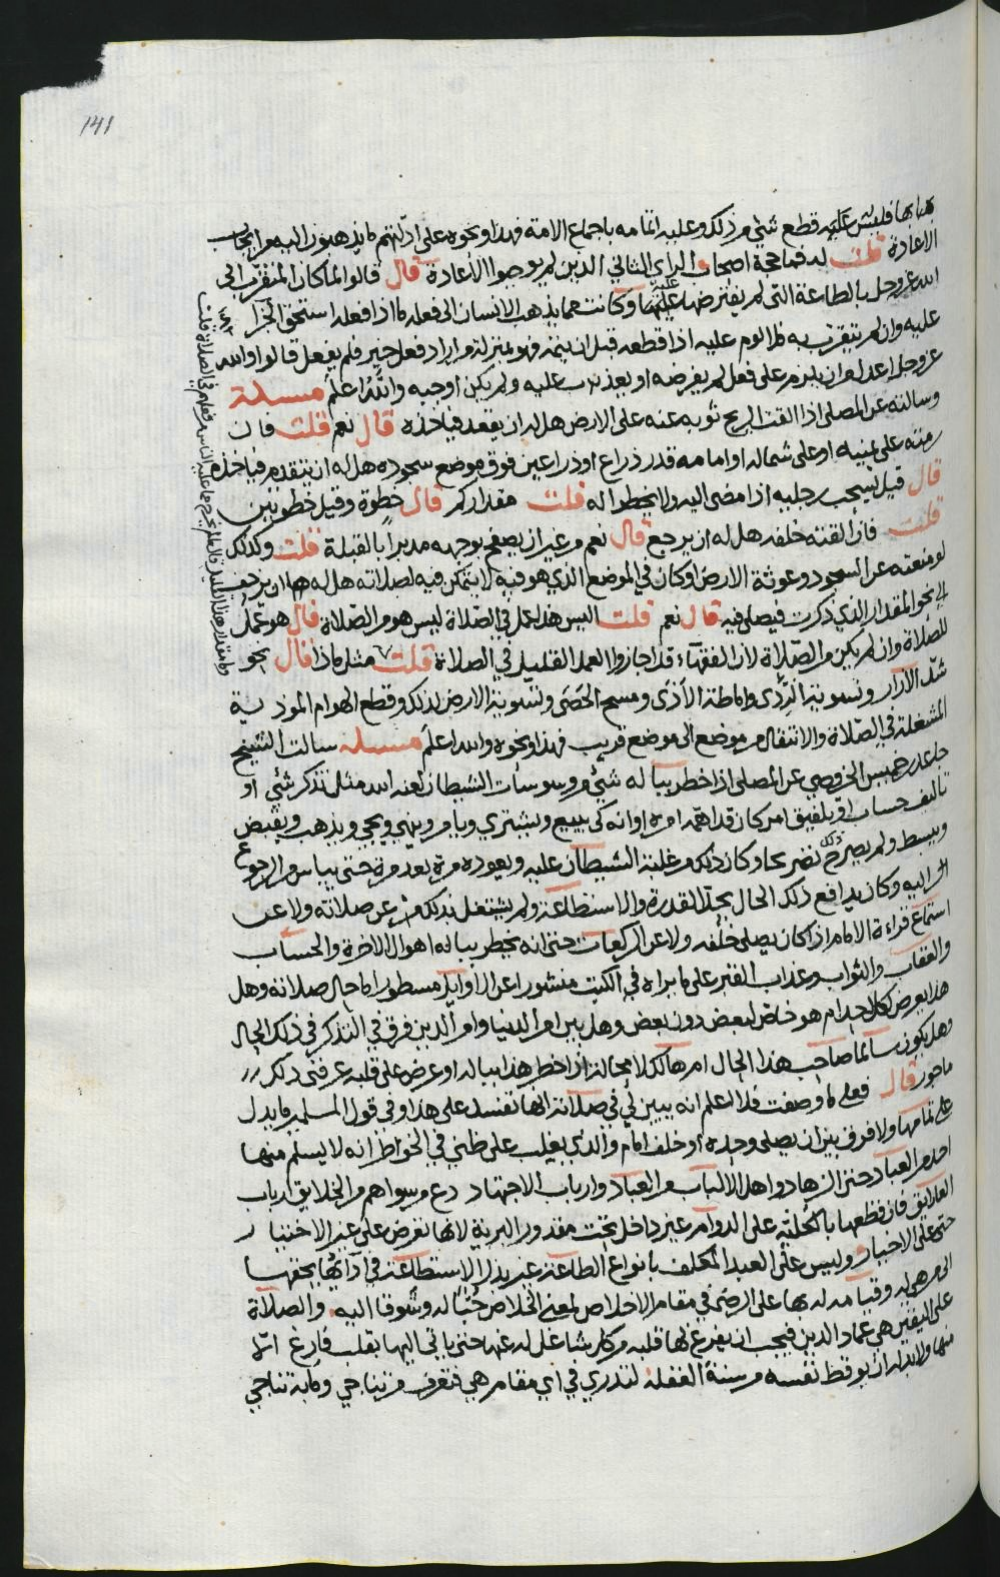 141
فليس عليه قطع شيء من ذلك وعليه اتمامه باجماع الامة فهذا ونحوه على ادلتهم ما يذهبون اليه من ايجاب
الاعادة قلت له فما حجة اصحاب الراي الثاني الذين لم يوجبوا الاعادة قال قالوا لما كان المتقرب الى
الله عز وجل بالطاعة التي لم يفترضها عليه وكانت مما يذهب الانسان الى فعله فاذا فعله استحق الجزا
عليه وان لم يتقرب به فلا لوم عليه اذا قطعه قبل ان يتمه فهو بمنزلة من اراد فعل خير فلم يفعل قالوا والله
عز وجل اعدل من ان يلزم على فعل لم يفرضه او يعذب عليه ولم يكن اوجبه والله اعلم مسئلة
وسالته عن المصلي اذا القت الريح ثوبه عنه على الارض هل له ان يقعد فياخذه قال نعم قلت فان
رمته على يمينه او على شماله او امامه قدر ذراع او ذراعين فوق موضع سجوده هل له ان يتقدم فياخذه
قال قيل يسحب رجليه اذا مضى اليه ولا يخطوا له قلت مقدار كم قال خطوة وقيل خطوتين
قلت فان القته خلفه هل له ان يرجع قال نعم من غير ان يصفح بوجهه مدبرا بالقبلة قلت وكذلك
لو منعته عن السجود وعوثة الارض وكان في الموضع الذي هو فيه لا يتمكن فيه لصلاته هل له ان يرجع
الى نحو المقدار الذي ذكرت فيصلي فيه قال نعم قلت اليس هذا عمل في الصلاة ليس هو من الصلاة قال هو عمل
للصلاة وان لم يكن من الصلاة لان الفقهاء قد اجازوا العمل القليل في الصلاة قلت مثل ماذا قال نحو
شد الازار وتسوية الردى واماطة الاذى ومسح الحصى وتسوية الارض لذلك وقطع الهوام الموذية
المشغلة في الصلاة والانتقال من موضع الى موضع قريب فهذا ونحوه والله اعلم مسئلة سالت الشيخ
خميس الخروصي عن المصلي اذا خطر بباله شيء من وسوسات الشيطان لعنه الله مثل تذكر شيء او
تاليف حساب او تلفيق امر كان قد اهمه امره او انه كمن يبيع ويشتري ويامر وينهي ويجي ويذهب ويقبض
ويبسط ولم يصرح ذلك تصريحا وكان ذلك من غلبة الشيطان عليه ويعوده مرة بعد مرة حتى يياس من الرجوع
اليه وكان يدافع ذلك الحال بجد المقدرة والاستطاعة ولم يشتغل بذلك عن صلاته ولا عن
استماع قراءة الامام اذا كان يصلي خلفه ولا عن الركعات حتى انه يخطر بباله اهوال الاخرة والحساب
والعقاب والثواب وعذاب القبر على ما يراه في الكتب منشورا عن الاوايل مسطورا ما حال صلاته وهل
هذا يعرض لكل احد ام هو خاص لبعض دون بعض وهل بين امر الدنيا وامر الدين فرق في التذكر في ذلك الحال
وهل يكون سالما صاحب هذا الحال ام هالكا لا محالة اذا خطر هذا بباله او عرض على قلبه عرفني ذلك
ماجور قال فعلى ما وصفت فلا اعلم انه يبين لي في صلاته انها تفسد على هذا وفي قول المسلمين ما يدل
على تمامها ولا فرق بين ان يصلي وحده او خلف امام والذي يغلب على ظني في الخواطر انه لا يسلم منها
احد من العباد حتى الزهاد واهل الالباب من العباد وارباب الاجتهاد دع من سواهم من الخلايق ارباب
العلايق فان قطعها بالكلية على الدوام غير داخل تحت مقدور البرية لانها تعرض على غير الاختيار
وليس على العبد المكلف بانواع الطاعة غير بذل الاستطاعة في ادائها بحقها
الى من هي له وقيامه له بها على الرضى في مقام الاخلاص لمعنى الخلاص حبا له وشوقا اليه والصلاة
على اليقين هي عماد الدين فيجب ان يفرغ لها قلبه من كل شاغل له عنها حتى ياتي اليها بقلب فارغ الا
منها ولابد له ان يوقظ نفسه من سنة الغفلة لتدري في اي مقام هي فتعرف من تناجي وما به تناجي